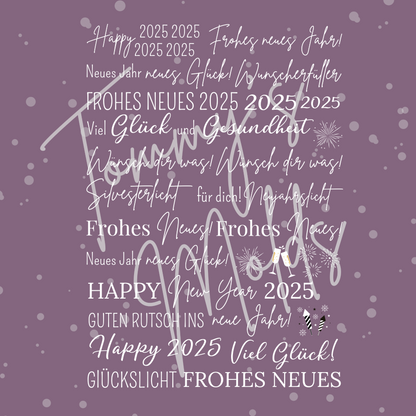 Happy 2025 2025 Frohes neues Jahr!
2025 2025
Neues Jahr neues Glück! Wunscherfüller
FROHES NEUES 2025 2025 2025
Viel Glück und Gesundheit
Wünsch dir was! Wünsch dir was!
Silvesterlicht für dich! Neujahrslicht
Frohes Neues! Frohes Neues!
Neues Jahr neues Glück!
HAPPY New Year 2025
GUTEN RUTSCH INS neue Jahr!
Happy 2025 Viel Glück!
GLÜCKSLICHT FROHES NEUES
Tommy's
Molds